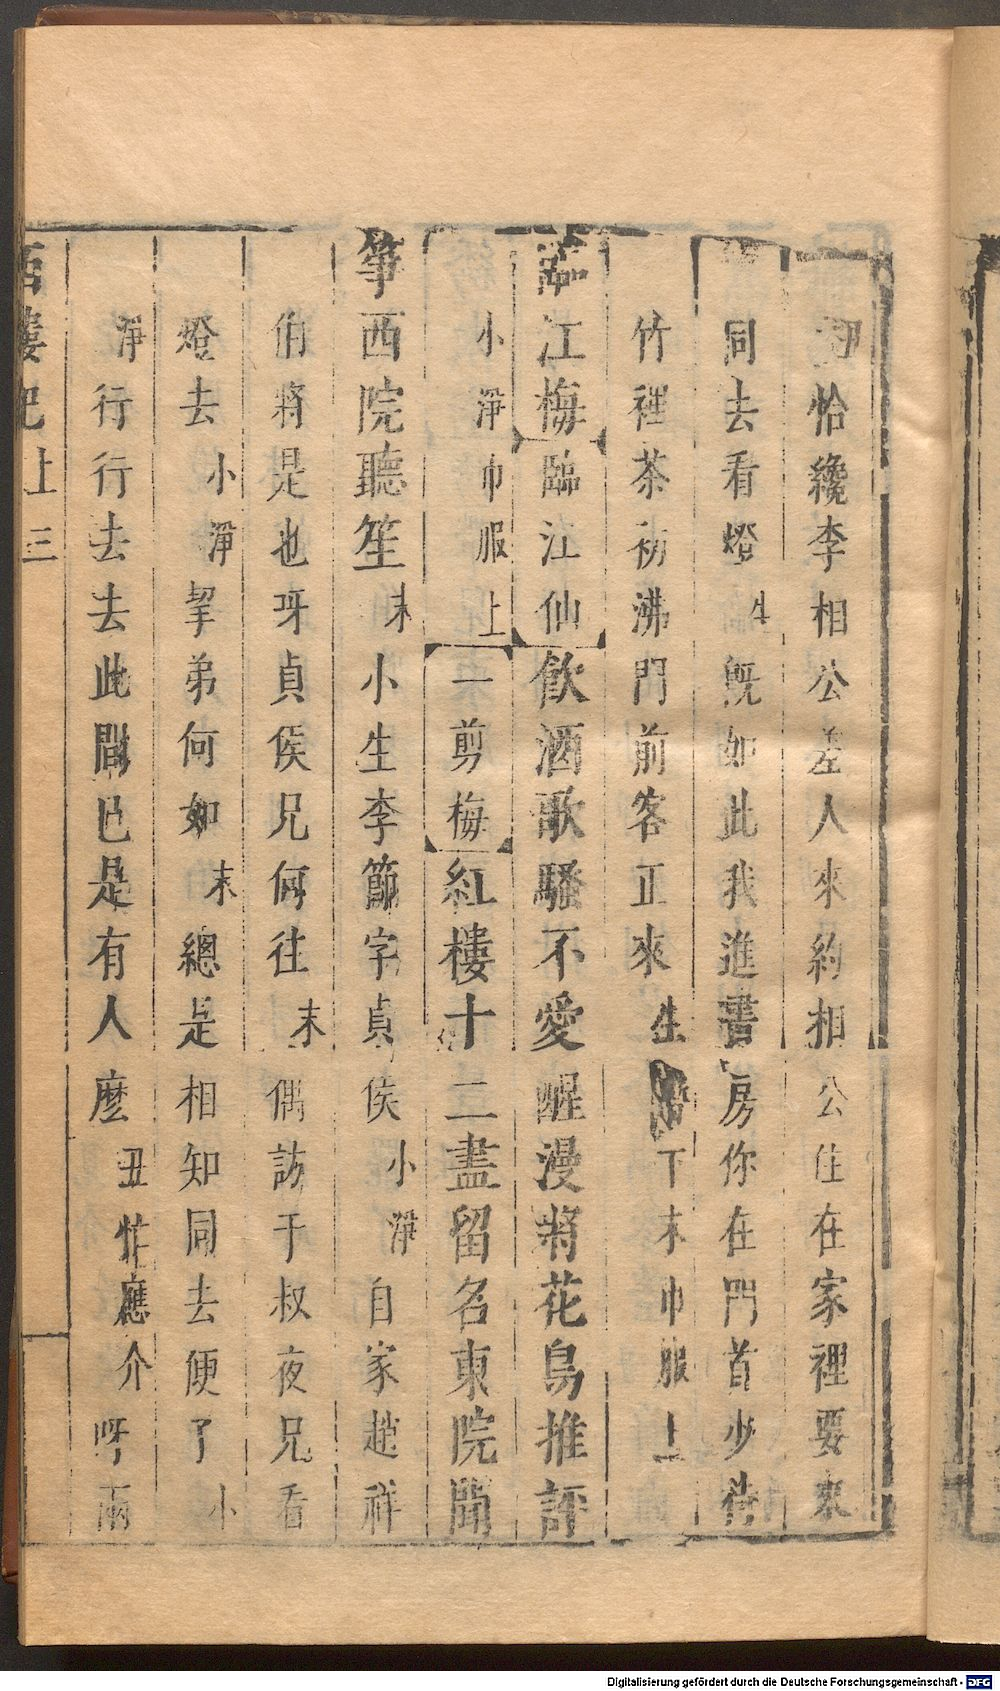 恰纔李相公差人來約相公住在家裡要來
同去看燈生旣如此我進書房你在門首少待
竹裡茶初沸門前客正來生下末巾服上
臨江梅臨江仙飲酒歌騷不愛醒漫將花鳥推評
小淨巾服上一剪梅紅樓十二盡留名東院聞
箏西院聽笙末小生李節字貞侯小淨自家趙祥
伯將是也呀貞侯兄何往末偶訪于叔夜兄看
燈去小淨挈弟何如末總是相知同去便了小
淨行行去去此間已是有人麽丑忙應介呀兩
西樓記上三
Digitalisierung gefördert durch die Deutsche Forschungsgemeinschaft - DFG